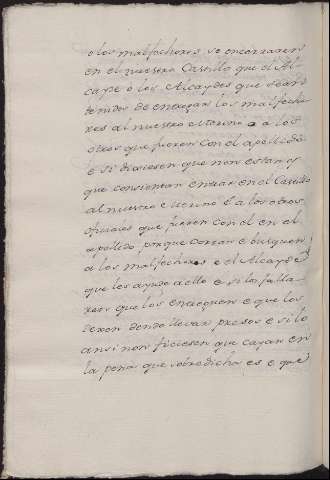 o los malfechores se encerraren
en el nuestro Castillo que el Al-
cayde o los Alcaydes que sean
tenidos de entregar los malfecho
res al nuestro Merino o a los
otros que fueren con el apellido
e si dixiesen que non estan y
que consientan entrar en el Castillo
al nuestro merino e a los otros
oficiales que fueren con el en el
apellido, porque corran e busquen
a los malfechores e el Alcayde
que les ayude a ello e si los falla
ren que los entreguen e que los
dexen dende llevar presos e si lo
ansi non ficiesen que cayan en
la pena que sobredicha es e que